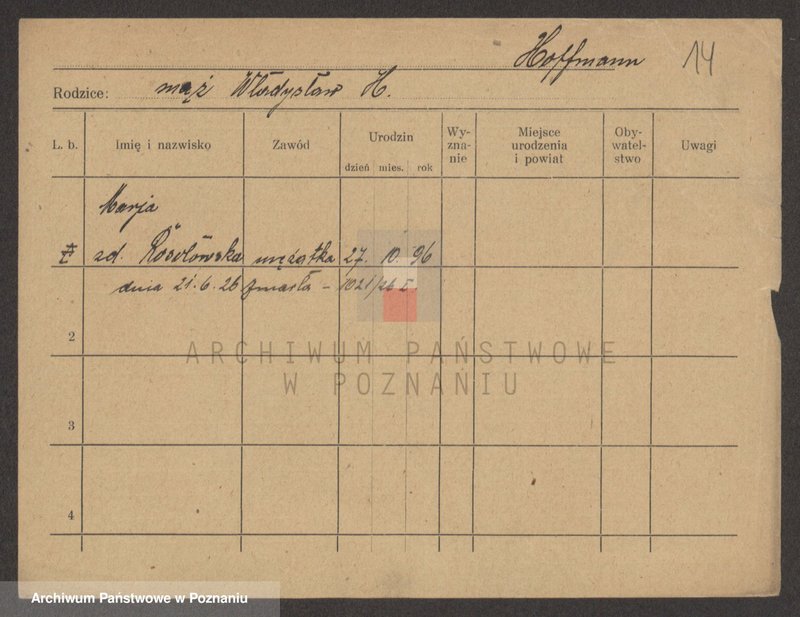 Hoffmann 14
Rodzice: mąż Władysław H.
L. b. Imię i nazwisko Zawód Urodzin dzień mies. rok Wy-zna-nie Miejsce urodzenia i powiat Oby-watel-stwo Uwagi
Marja
zd. Rosołowska mężatka 27. 10. 96
dnia 21.6.26 zmarła – 1021/26 I
2
ARCHIWUM PAŃSTWOWE
W POZNANIU
3
4
Archiwum Państwowe w Poznaniu